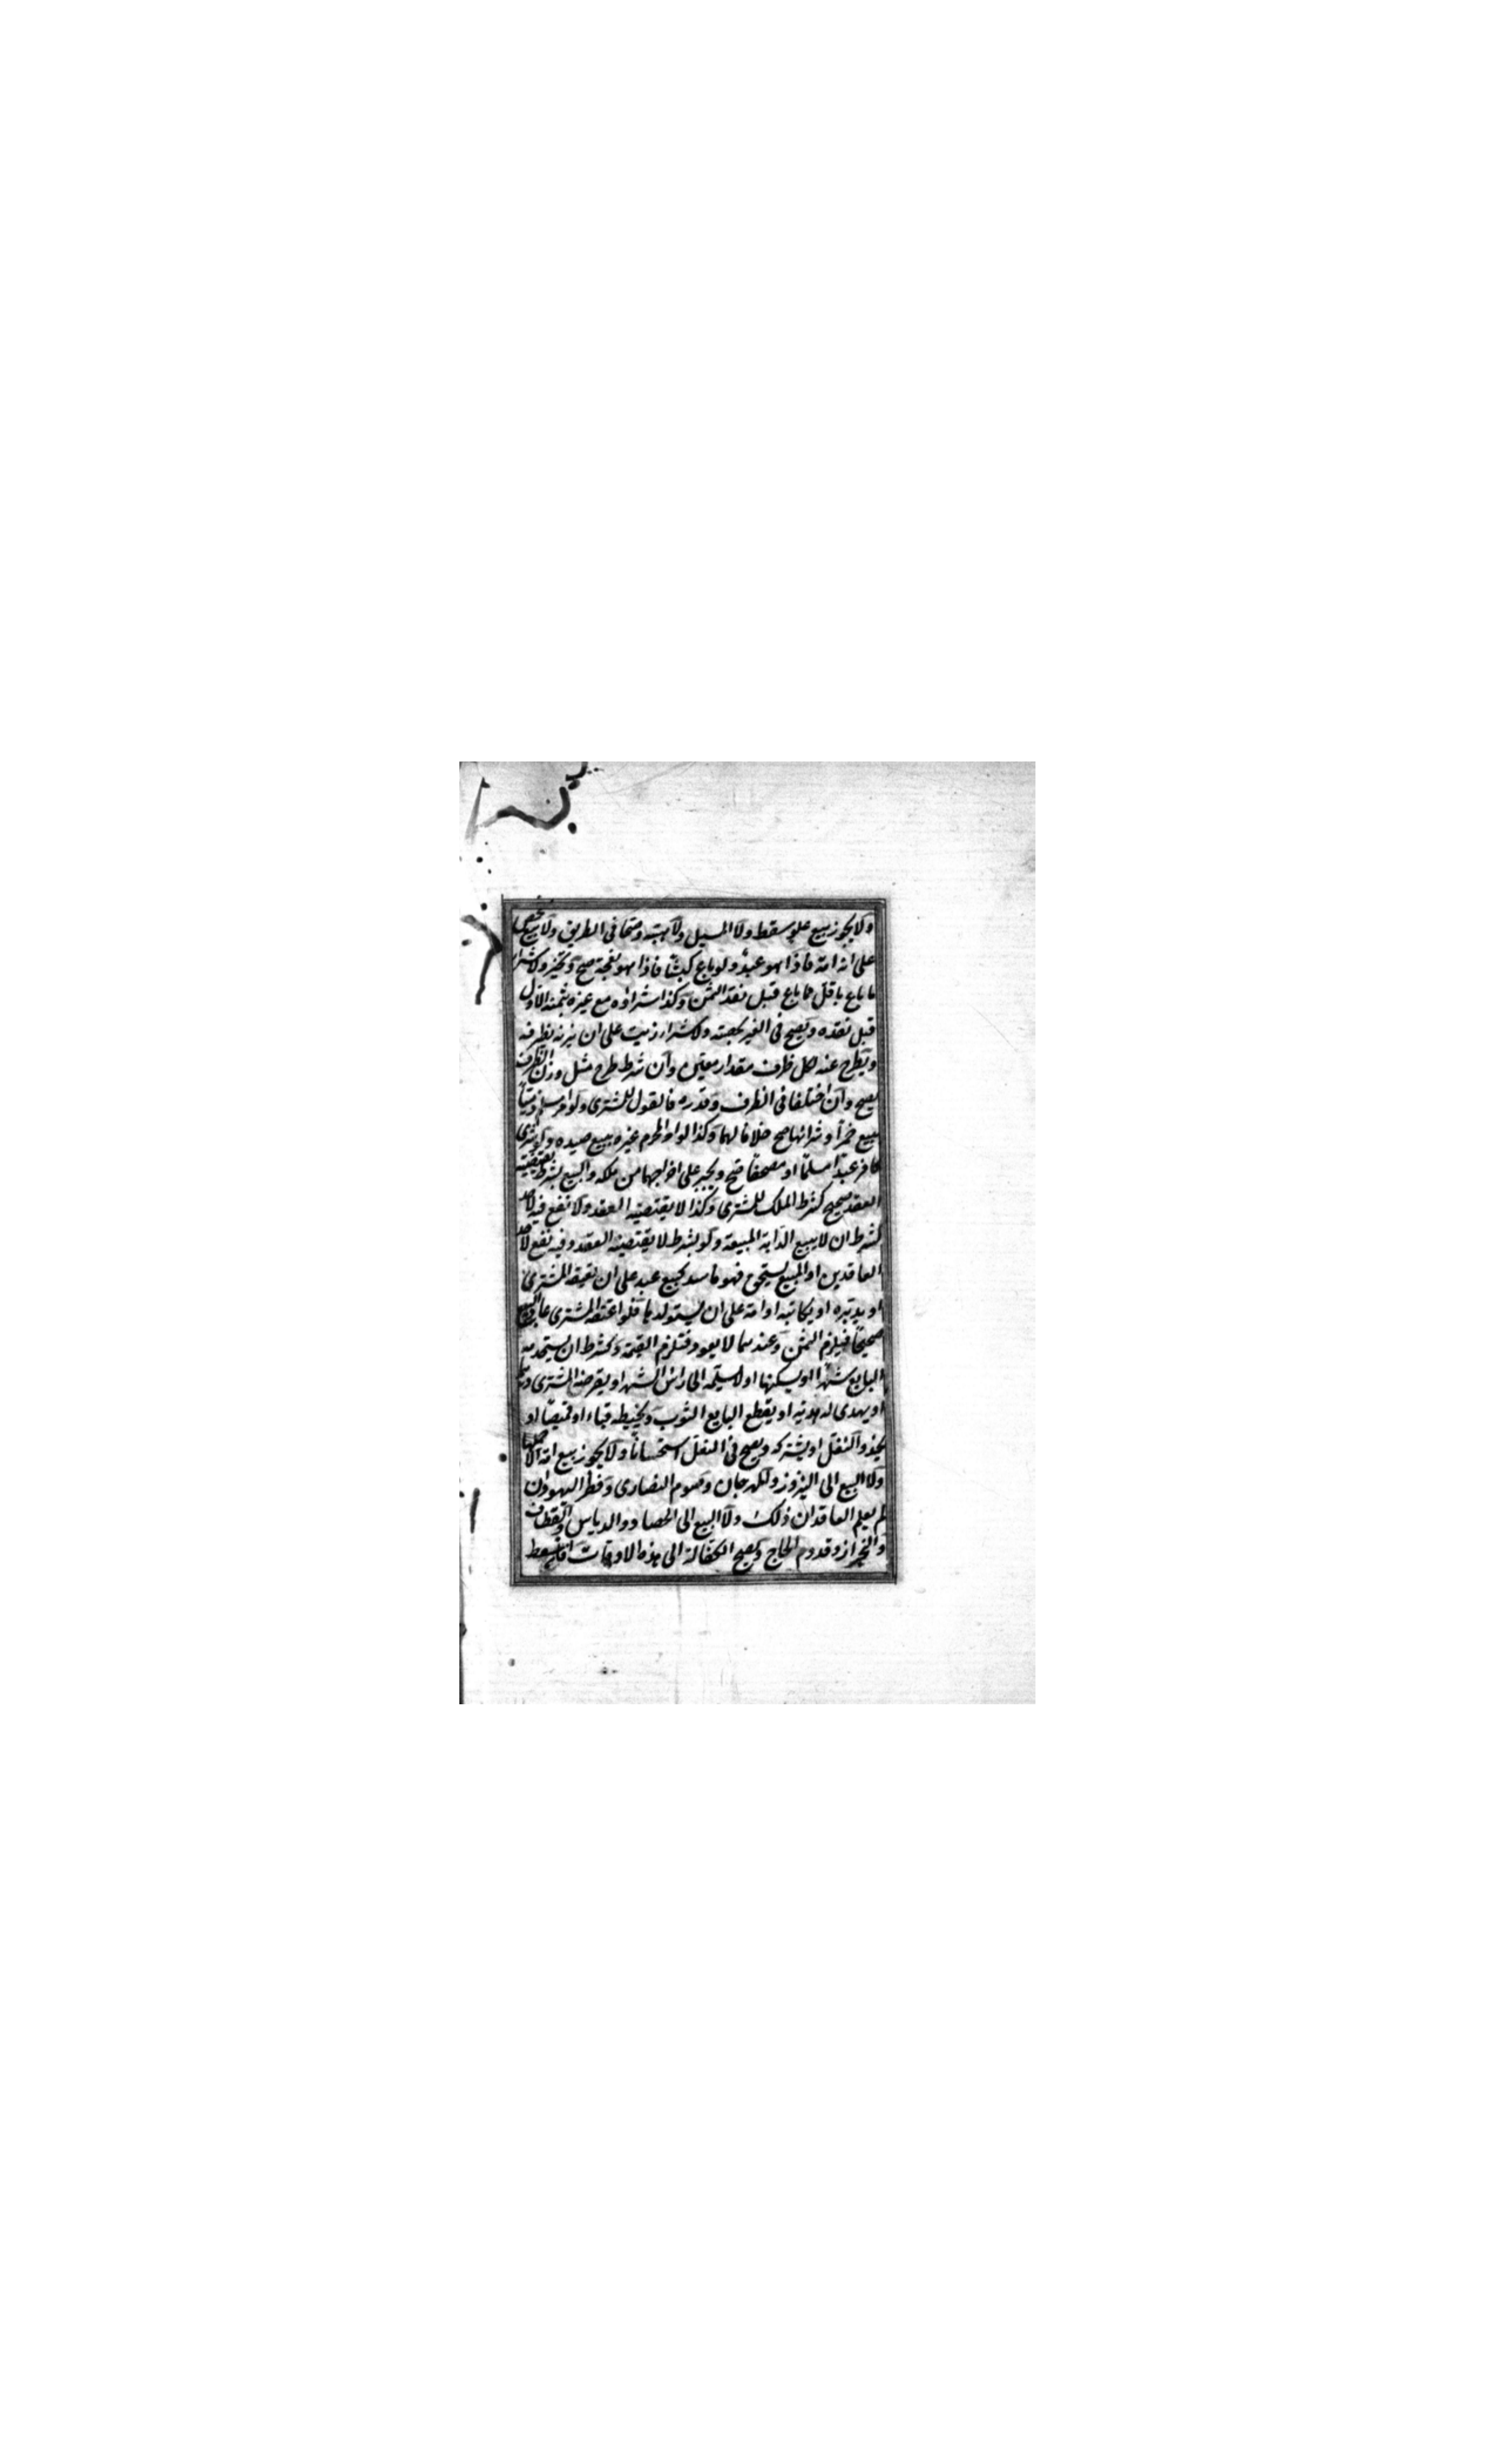 ولا يجوز بيع علو سقط ولا المسيل ولا هبته وصحا في الطريق ولا بيع شخص
على انه امة فاذا هو عبد ولو باع كبشا فاذا هو نعجة صح ويخير ولا شراء
ما باع باقل مما باع قبل نقد الثمن وكذا شراؤه مع غيره بثمنه الاول
قبل نقده ويصح في الغير بحصته ولا شراء زيت على ان يزنه بظرفه
ويطرح عنه لكل ظرف مقدار معين وان شرط طرح مثل وزن الظرف
يصح وان اختلفا في الظرف وقدره فالقول للمشترى ولو امر مسلم ذميا
ببيع خمر او شرائها صح خلافا لهما وكذا لو امر المحرم غيره ببيع صيده ولو شرى
كافر عبدا مسلما او مصحفا صح ويجبر على اخراجهما من ملكه والبيع بشرط يقتضيه
العقد صحيح كشرط الملك للمشترى وكذا لا يقتضيه العقد ولا نفع فيه لاحد
كشرط ان لا يبيع الدابة المبيعة ولو بشرط لا يقتضيه العقد وفيه نفع لاحد
العاقدين او المبيع يستحق فهو فاسد كبيع عبد على ان يعتقه المشترى
او يدبره او يكاتبه او امة على ان يستولدها فلو اعتقه المشترى عاد البيع
صحيحا فيلزم الثمن وعندهما لا يعود فتلزم القيمة وكشرط ان يستخدمه
البايع شهرا او يسكنها او لا يسلمه الى راس الشهر او يقرضه المشترى درهما
او يهدى له هدية او يقطع البايع الثوب ويخيطه قباء او قميصا او
يحذو النعل او يشركه ويصح في النعل استحسانا ولا يجوز بيع امة الا حملها
ولا البيع الى النيروز والمهرجان وصوم النصارى وفطر اليهود ان
لم يعلم العاقدان ذلك ولا البيع الى الحصاد والدياس والقطاف
والجزاز وقدوم الحاج ويصح الكفالة الى هذه الاوقات فان اسقط